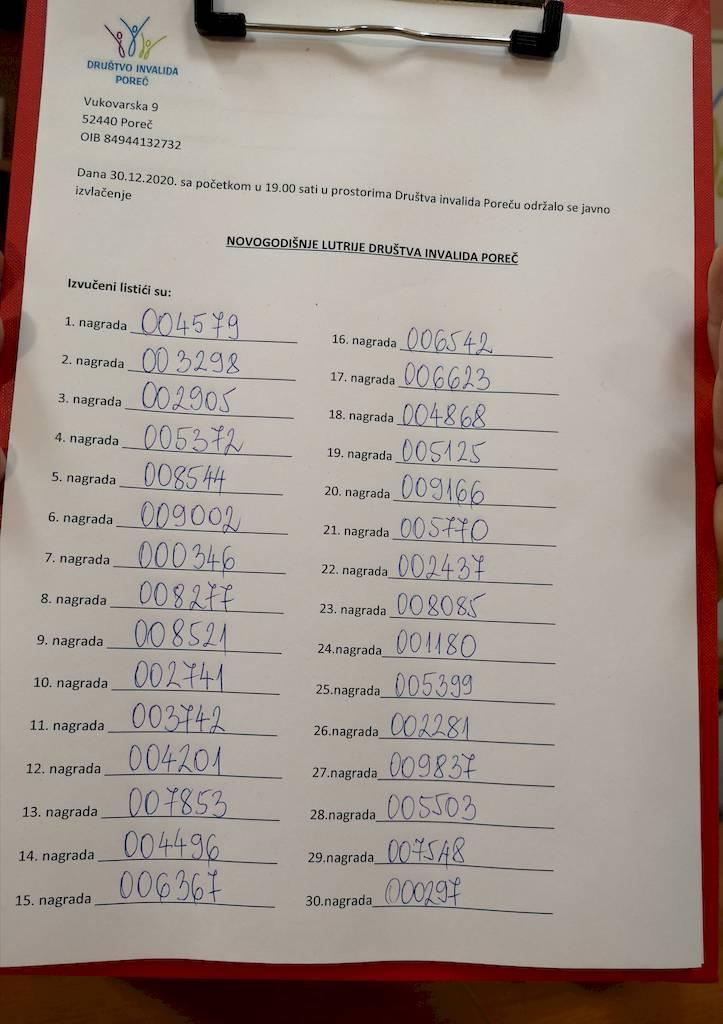 DRUŠTVO INVALIDA
POREČ
Vukovarska 9
52440 Poreč
OIB 84944132732
Dana 30.12.2020. sa početkom u 19.00 sati u prostorima Društva invalida Poreču održalo se javno
izvlačenje
NOVOGODIŠNJE LUTRIJE DRUŠTVA INVALIDA POREČ
Izvučeni listići su:
1. nagrada 004579
2. nagrada 003298
3. nagrada 002905
4. nagrada 005372
5. nagrada 008544
6. nagrada 009002
7. nagrada 000346
8. nagrada 008277
9. nagrada 008521
10. nagrada 002741
11. nagrada 003742
12. nagrada 004201
13. nagrada 007853
14. nagrada 004496
15. nagrada 006367
16. nagrada 006542
17. nagrada 006623
18. nagrada 004868
19. nagrada 005125
20. nagrada 009166
21. nagrada 005770
22. nagrada 002437
23. nagrada 008085
24.nagrada 001180
25.nagrada 005399
26.nagrada 002281
27.nagrada 009837
28.nagrada 005503
29.nagrada 007548
30.nagrada 000297